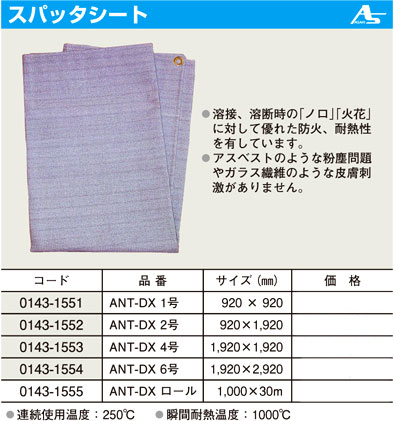 スパッタシート
AS
●溶接、溶断時の「ノロ」「火花」
に対して優れた防火、耐熱性
を有しています。
●アスベストのような粉塵問題
やガラス繊維のような皮膚刺
激がありません。
コード 品番 サイズ(mm) 価格
0143-1551 ANT-DX 1号 920 × 920
0143-1552 ANT-DX 2号 920×1,920
0143-1553 ANT-DX 4号 1,920×1,920
0143-1554 ANT-DX 6号 1,920×2,920
0143-1555 ANT-DX ロール 1,000×30m
●連続使用温度：250℃ ●瞬間耐熱温度：1000℃